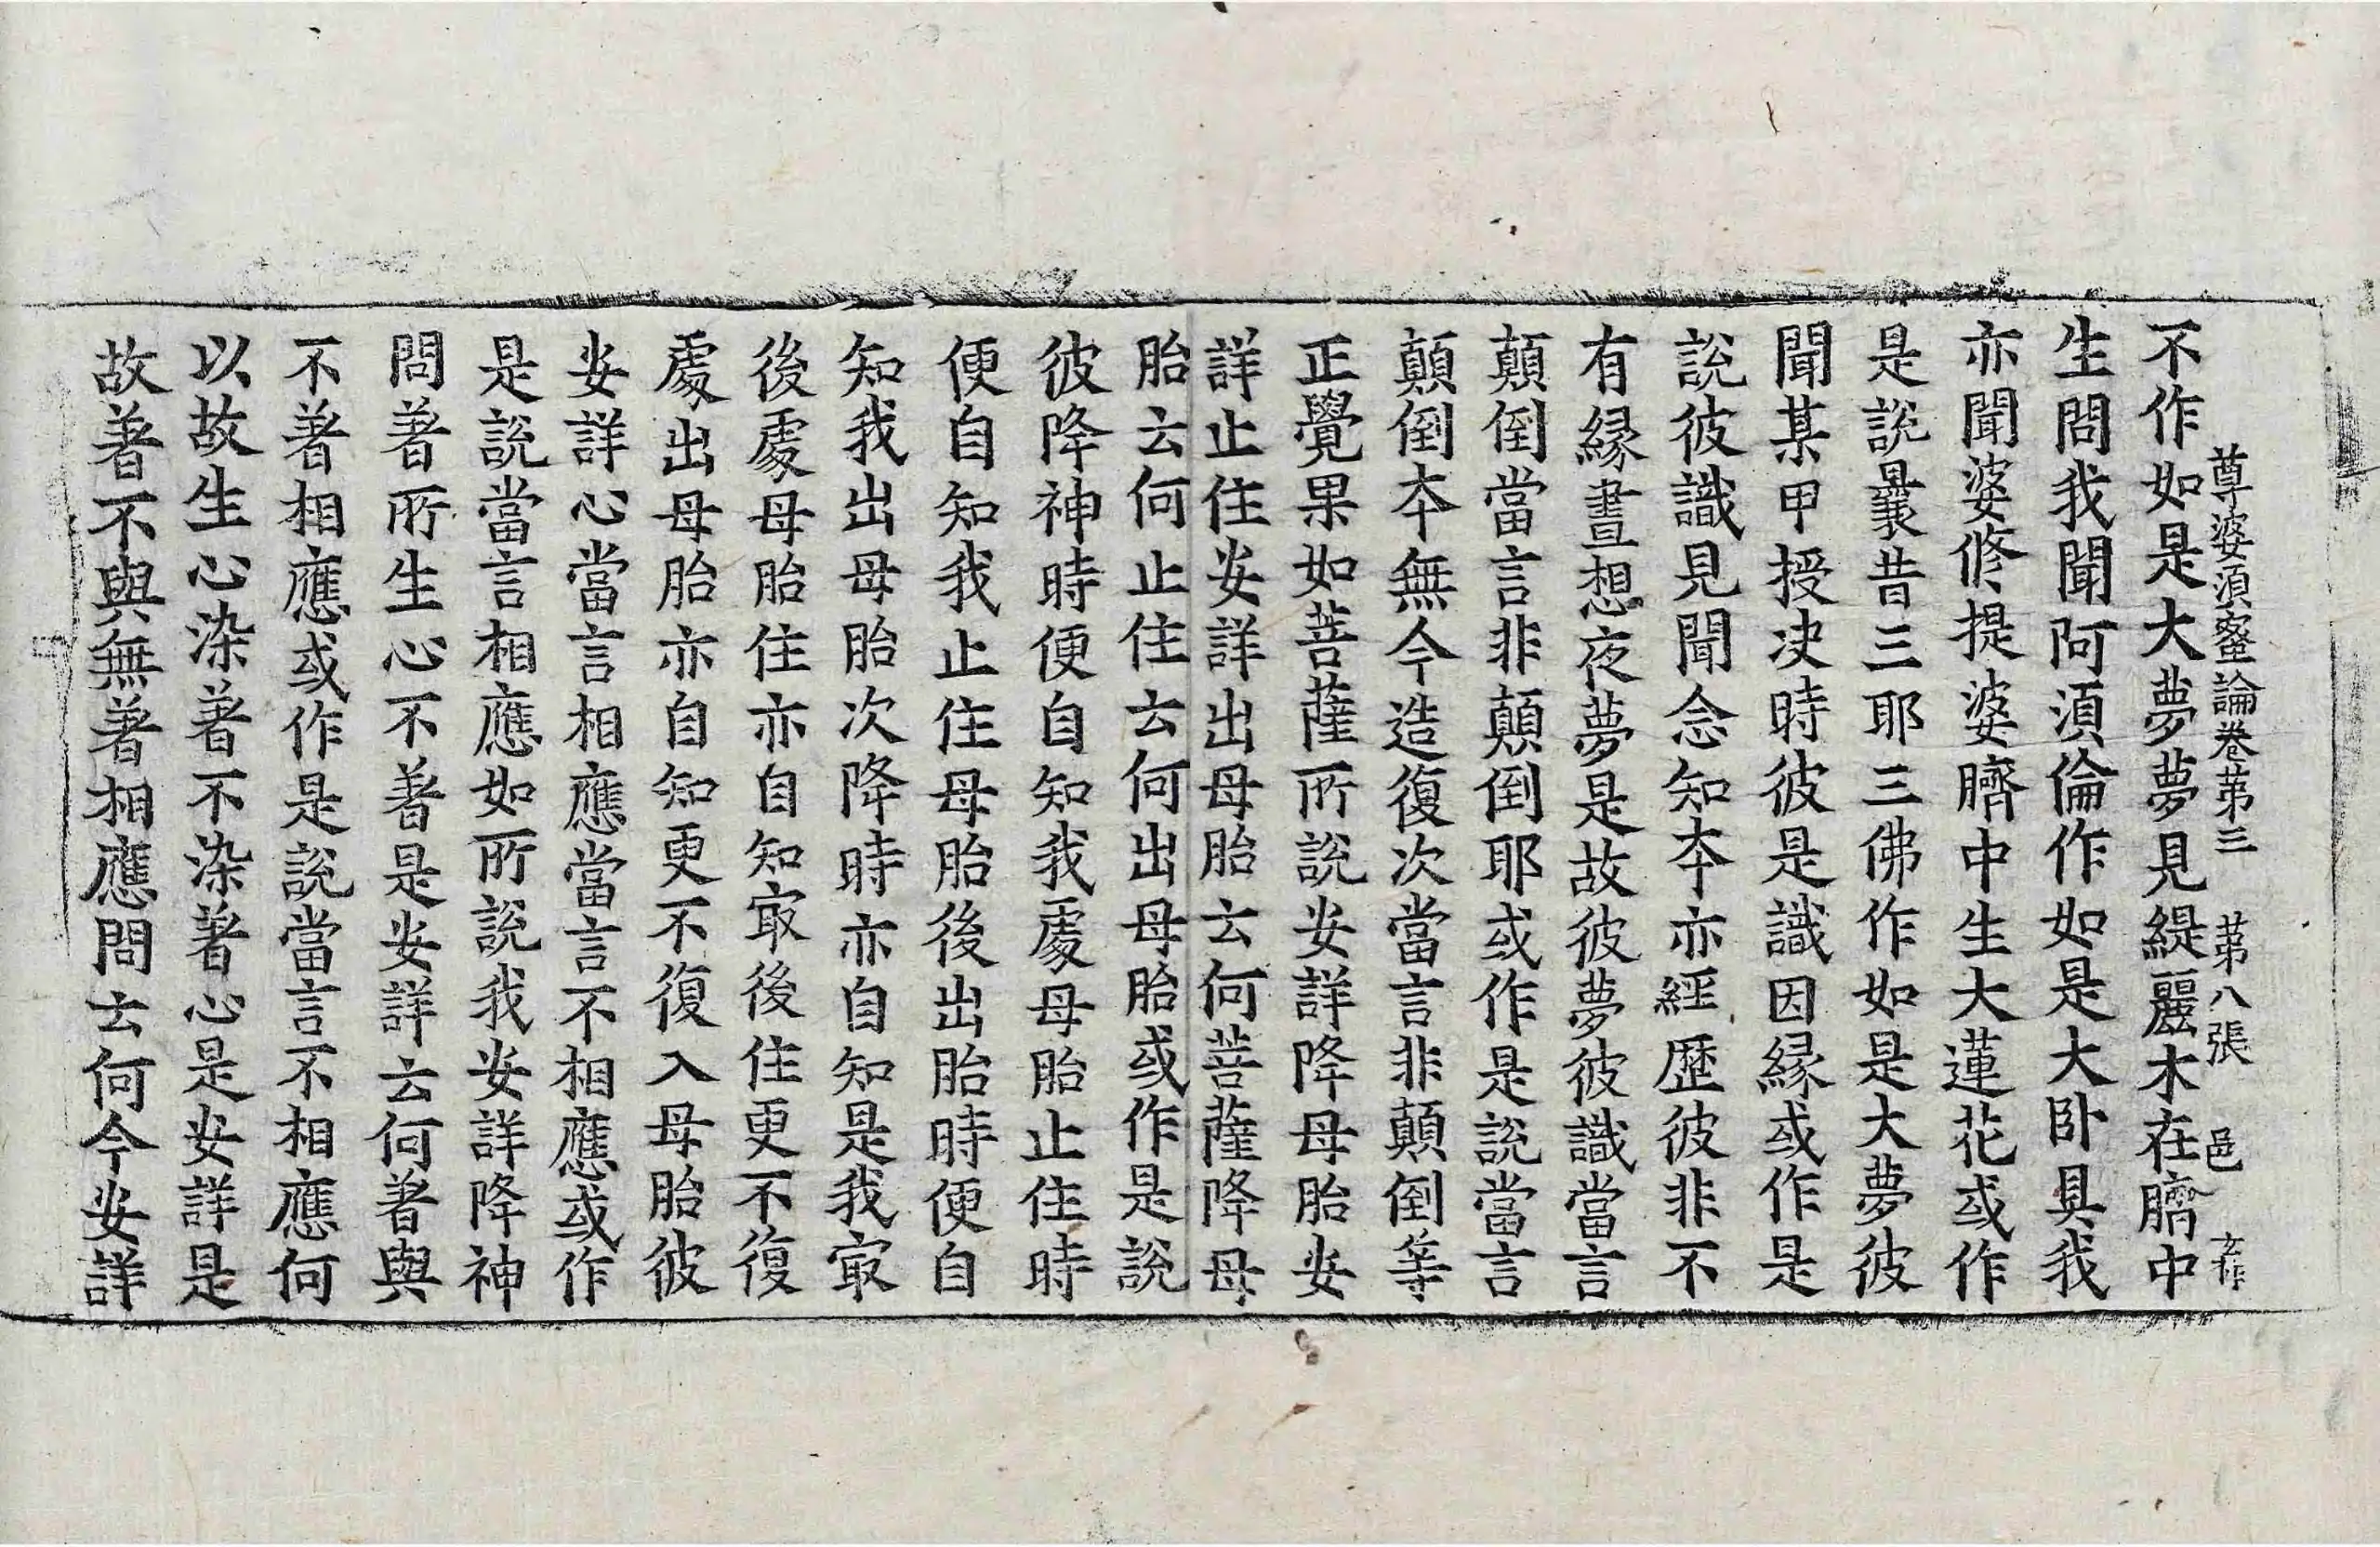 尊婆須蜜論卷苐三 苐八張 邑
不作如是大夢夢見緹麗木在臍中
生問我聞阿須倫作如是大卧具我
亦聞婆修提婆臍中生大蓮花或作
是說曩昔三耶三佛作如是大夢彼
聞某甲授决時彼是識因緣或作是
說彼識見聞念知本亦經歷彼非不
有緣晝想夜夢是故彼夢彼識當言
顛倒當言非顛倒耶或作是說當言
顛倒本無今造復次當言非顛倒等
正覺果如菩薩所說安詳降母胎安
詳止住安詳出母胎云何菩薩降母
胎云何止住云何出母胎或作是說
彼降神時便自知我處母胎止住時
便自知我止住母胎後出胎時便自
知我出母胎次降時亦自知是我㝡
後處母胎住亦自知㝡後住更不復
處出母胎亦自知更不復入母胎彼
安詳心當言相應當言不相應或作
是說當言相應如所說我安詳降神
問著所生心不著是安詳云何著與
不著相應或作是說當言不相應何
以故生心染著不染著心是安詳是
故著不與無著相應問云何今安詳